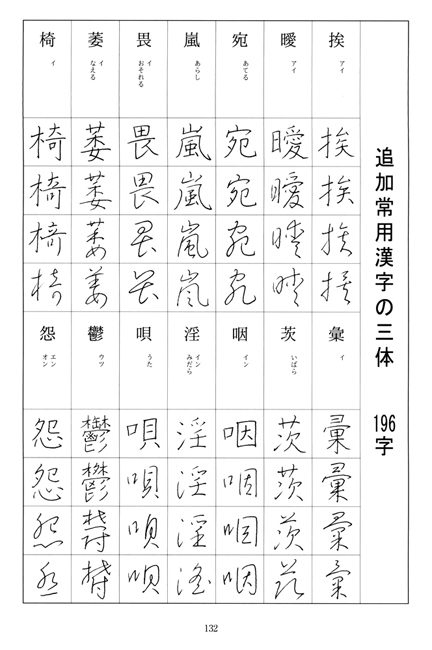 追加常用漢字の三体 196字
挨 アイ
挨
挨
挨
挨
曖 アイ
曖
曖
曖
曖
宛 あてる
宛
宛
宛
宛
嵐 あらし
嵐
嵐
嵐
嵐
畏 イ おそれる
畏
畏
畏
畏
萎 イ なえる
萎
萎
萎
萎
椅 イ
椅
椅
椅
椅
彙 イ
彙
彙
彙
彙
茨 いばら
茨
茨
茨
茨
咽 イン
咽
咽
咽
咽
淫 イン みだら
淫
淫
淫
淫
唄 うた
唄
唄
唄
唄
鬱 ウツ
鬱
鬱
鬱
鬱
怨 エン オン
怨
怨
怨
怨
132